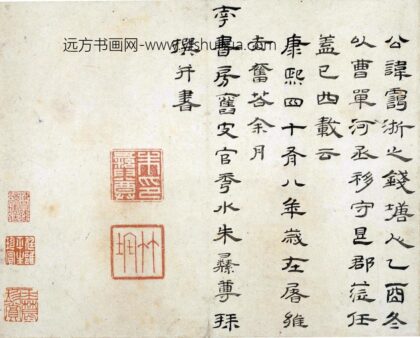 公諱浙之錢塘人乙酉冬
以曹單河丞移守郡莅任
蓋已四載云
康熙四十有八年歲在屠維
赤奮若余月
南書房舊史官秀水朱彝尊拜
撰并書
朱彝尊印
竹垞
远方书画网